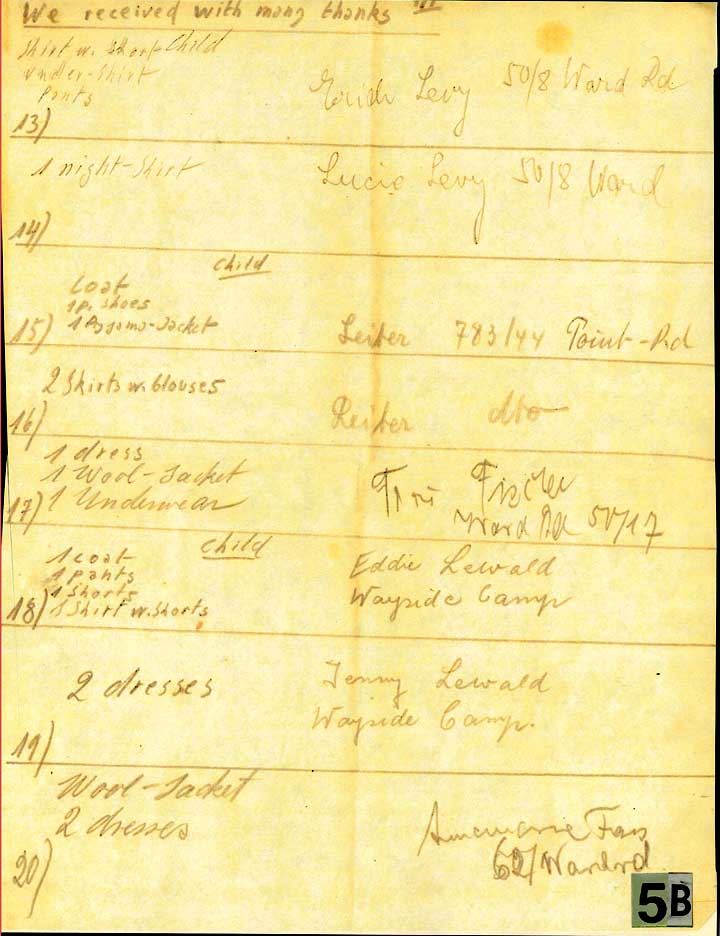 We received with many thanks
Shirt w. Short Child
under-Shirt
pants
Levy 50/8 Ward Rd
13)
1 night-Shirt
Lucie Levy 50/8 Ward
14)
Child
Coat
1 p. shoes
1 Pyjama-Jacket
15)
Leiter 783/44 Point-Rd
2 Skirts w. blouses
Reiter dto
16)
1 dress
1 Wool-Jacket
1 Underwear
17)
Fischer
Ward Rd 50/17
Child
1 coat
1 pants
1 Shorts
1 Shirt w. Shorts
18)
Eddie Lewald
Wayside Camp
2 dresses
Jenny Lewald
Wayside Camp.
19)
Wool-Jacket
2 dresses
Annemarie
62/Wardrd.
20)
5B